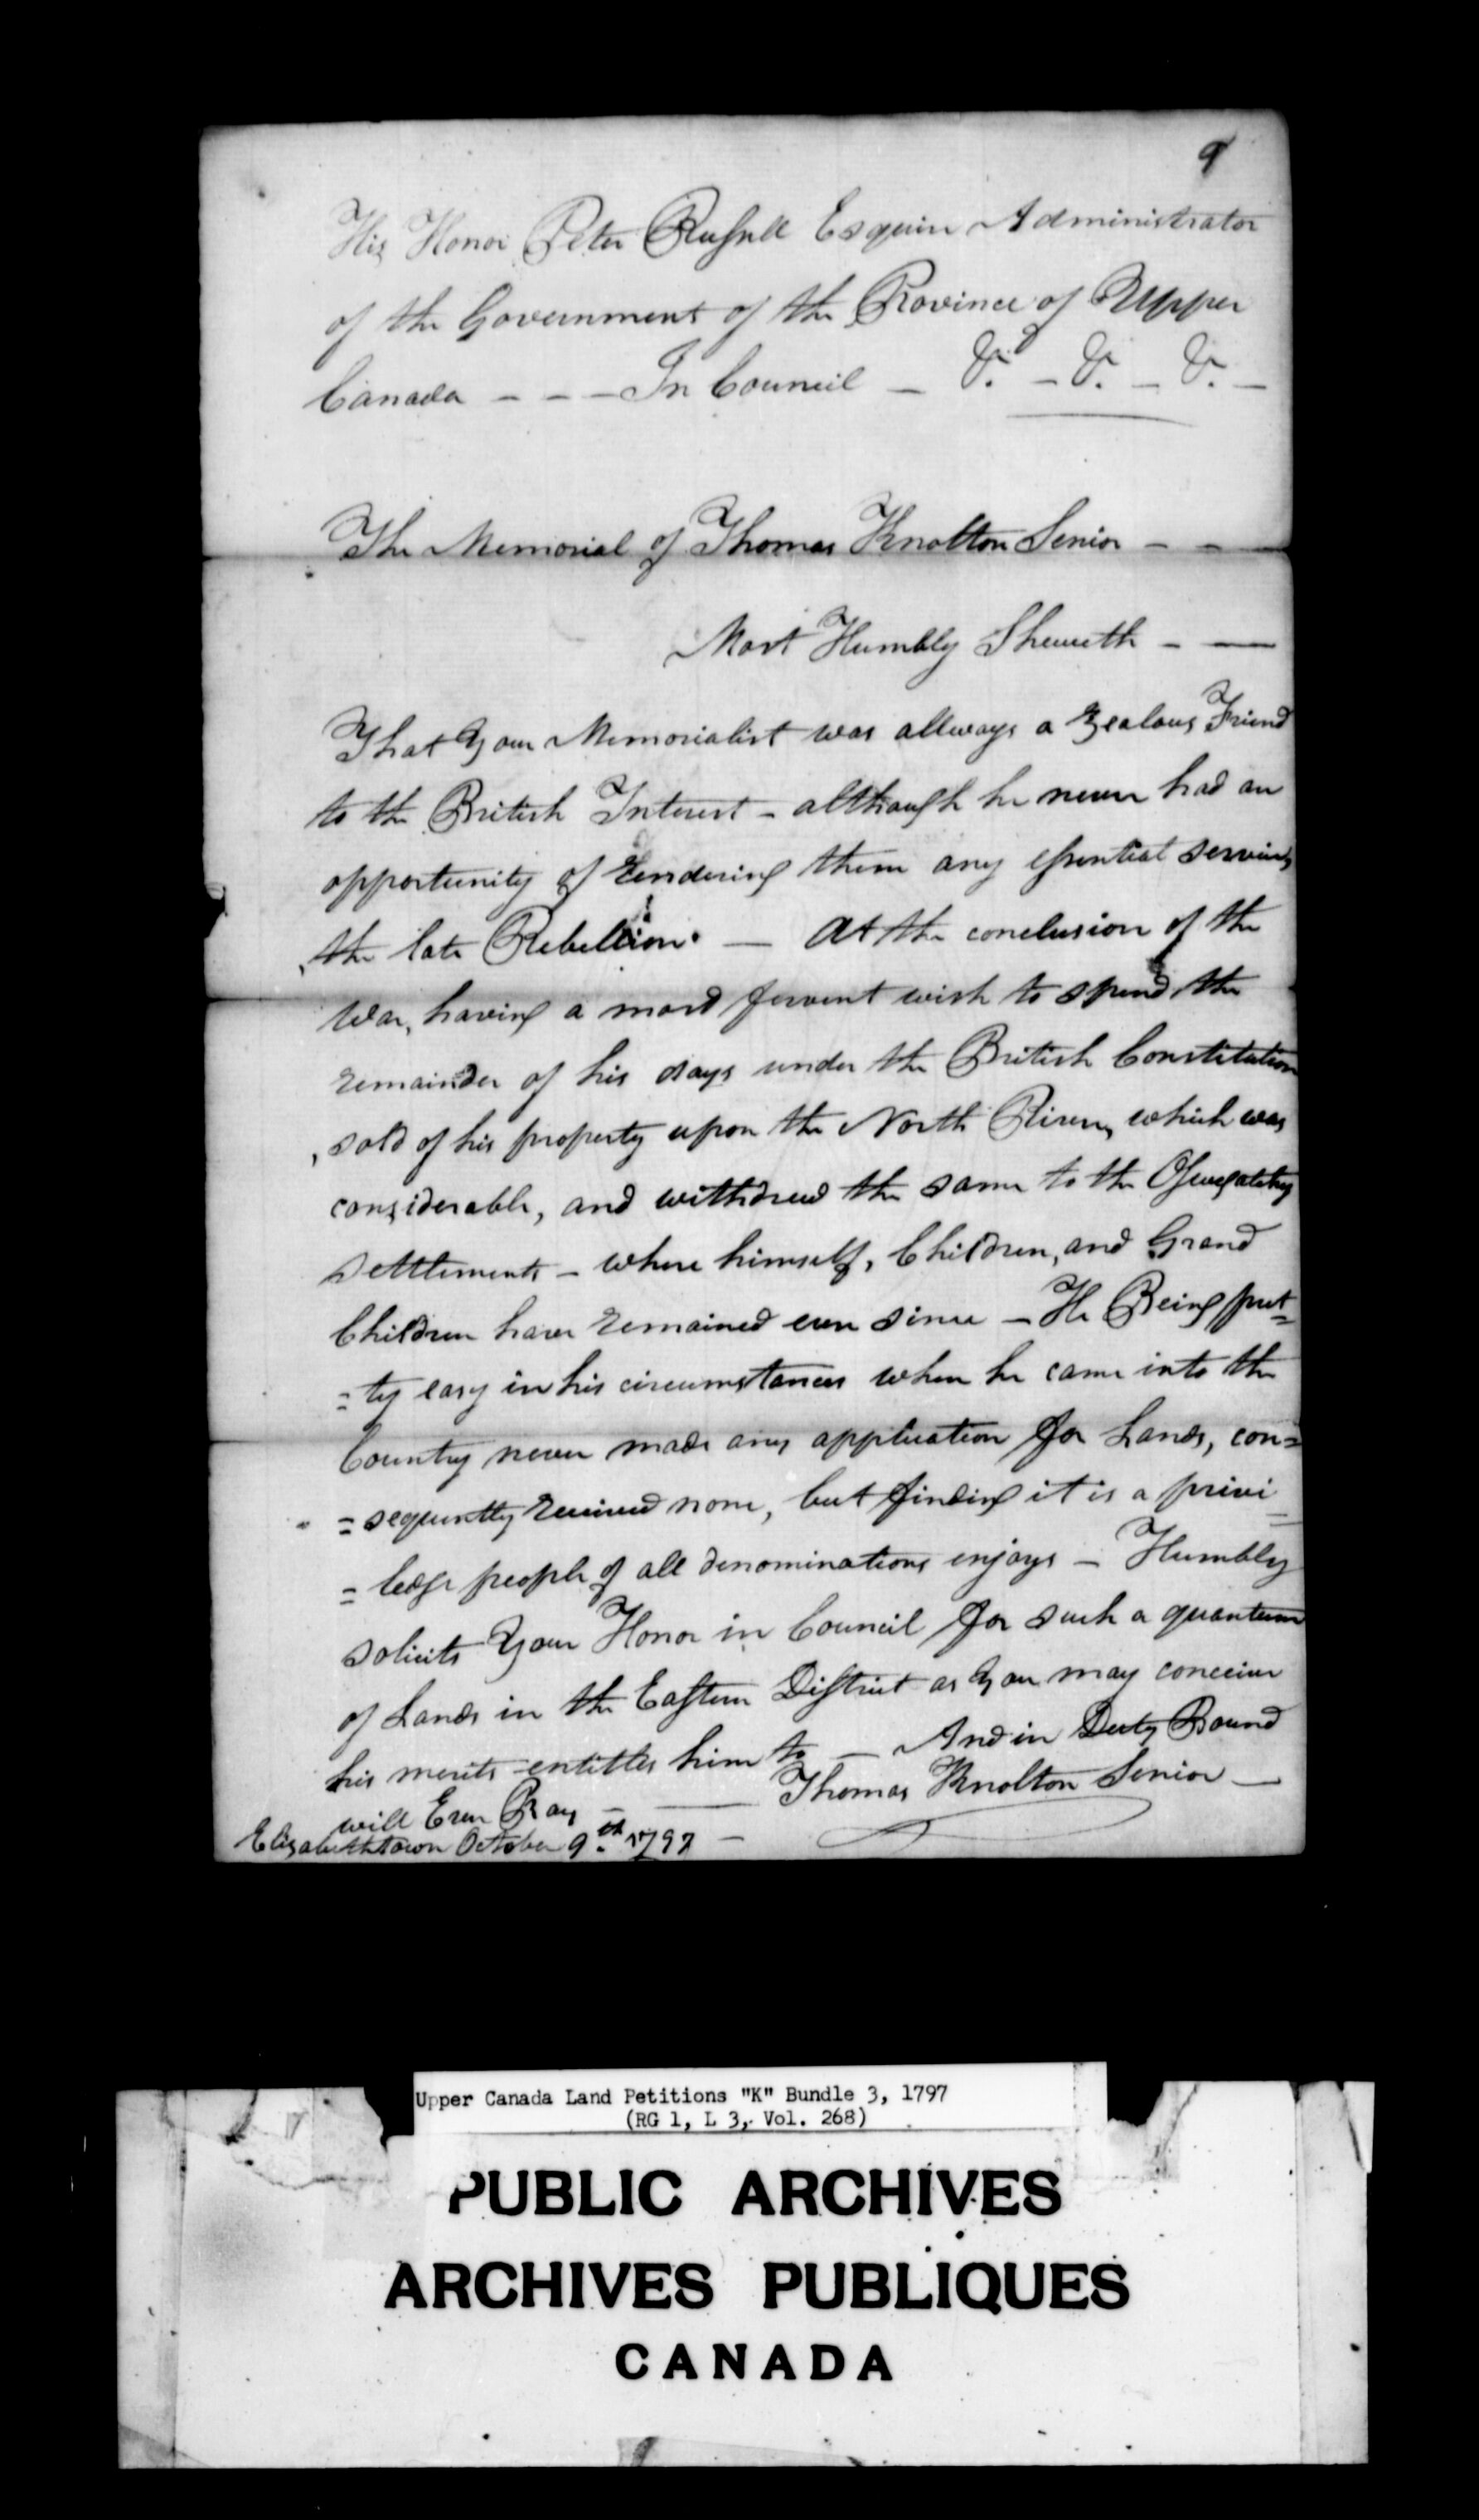 9
His Honor Peter Russell Esquire Administrator
of the Government of the Province of Upper
Canada - - - In Council - &c. - &c. - &c. -
The Memorial of Thomas Knolton Senior - -
Most Humbly Sheweth - -
That Your Memorialist was allways a Zealous Friend
to the British Interest - although he never had an
opportunity of rendering them any essential services
the late Rebellion. - At the conclusion of the
War, having a most fervent wish to spend the
remainder of his days under the British Constitution
sold of his property upon the North River, which was
considerable, and withdrew the same to the Oswegatchy
settlements - where himself, Children, and Grand
Children have remained ever since - He Being pret=
=ty easy in his circumstances when he came into the
Country never made any application for Lands, con=
=sequently received none, but finding it is a privi=
=ledge people of all denominations enjoys - Humbly
solicits Your Honor in Council for such a quantum
of Lands in the Eastern District as You may conceive
his merits entitles him to - And in Duty Bound
will Ever Pray - - Thomas Knolton Senior -
Elizabethtown October 9th. 1797 -
Upper Canada Land Petitions "K" Bundle 3, 1797
(RG 1, L 3, Vol. 268)
PUBLIC ARCHIVES
ARCHIVES PUBLIQUES
CANADA